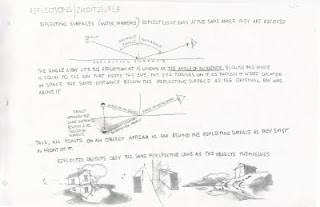 REFLECTIONS
REFLECTING SURFACES (WATER, MIRRORS) DEFLECT LIGHT RAYS AT THE SAME ANGLE THEY ARE RECEIVED
REFLECTING SURFACE
THE ANGLE A RAY HITS THE REFLECTOR AT IS KNOWN AS THE ANGLE OF INCIDENCE. BECAUSE THIS ANGLE
IS EQUAL TO THE ONE THAT MEETS THE EYE, THE EYE FOCUSES ON IT AS THOUGH IT WERE LOCATED
IN SPACE THE SAME DISTANCE BELOW THE REFLECTING SURFACE AS THE ORIGINAL RAY WAS
ABOVE IT.
THUS, ALL POINTS ON AN OBJECT APPEAR AS FAR BEHIND THE REFLECTING SURFACE AS THEY EXIST
IN FRONT OF IT.
REFLECTED OBJECTS OBEY THE SAME PERSPECTIVE LAWS AS THE OBJECTS THEMSELVES